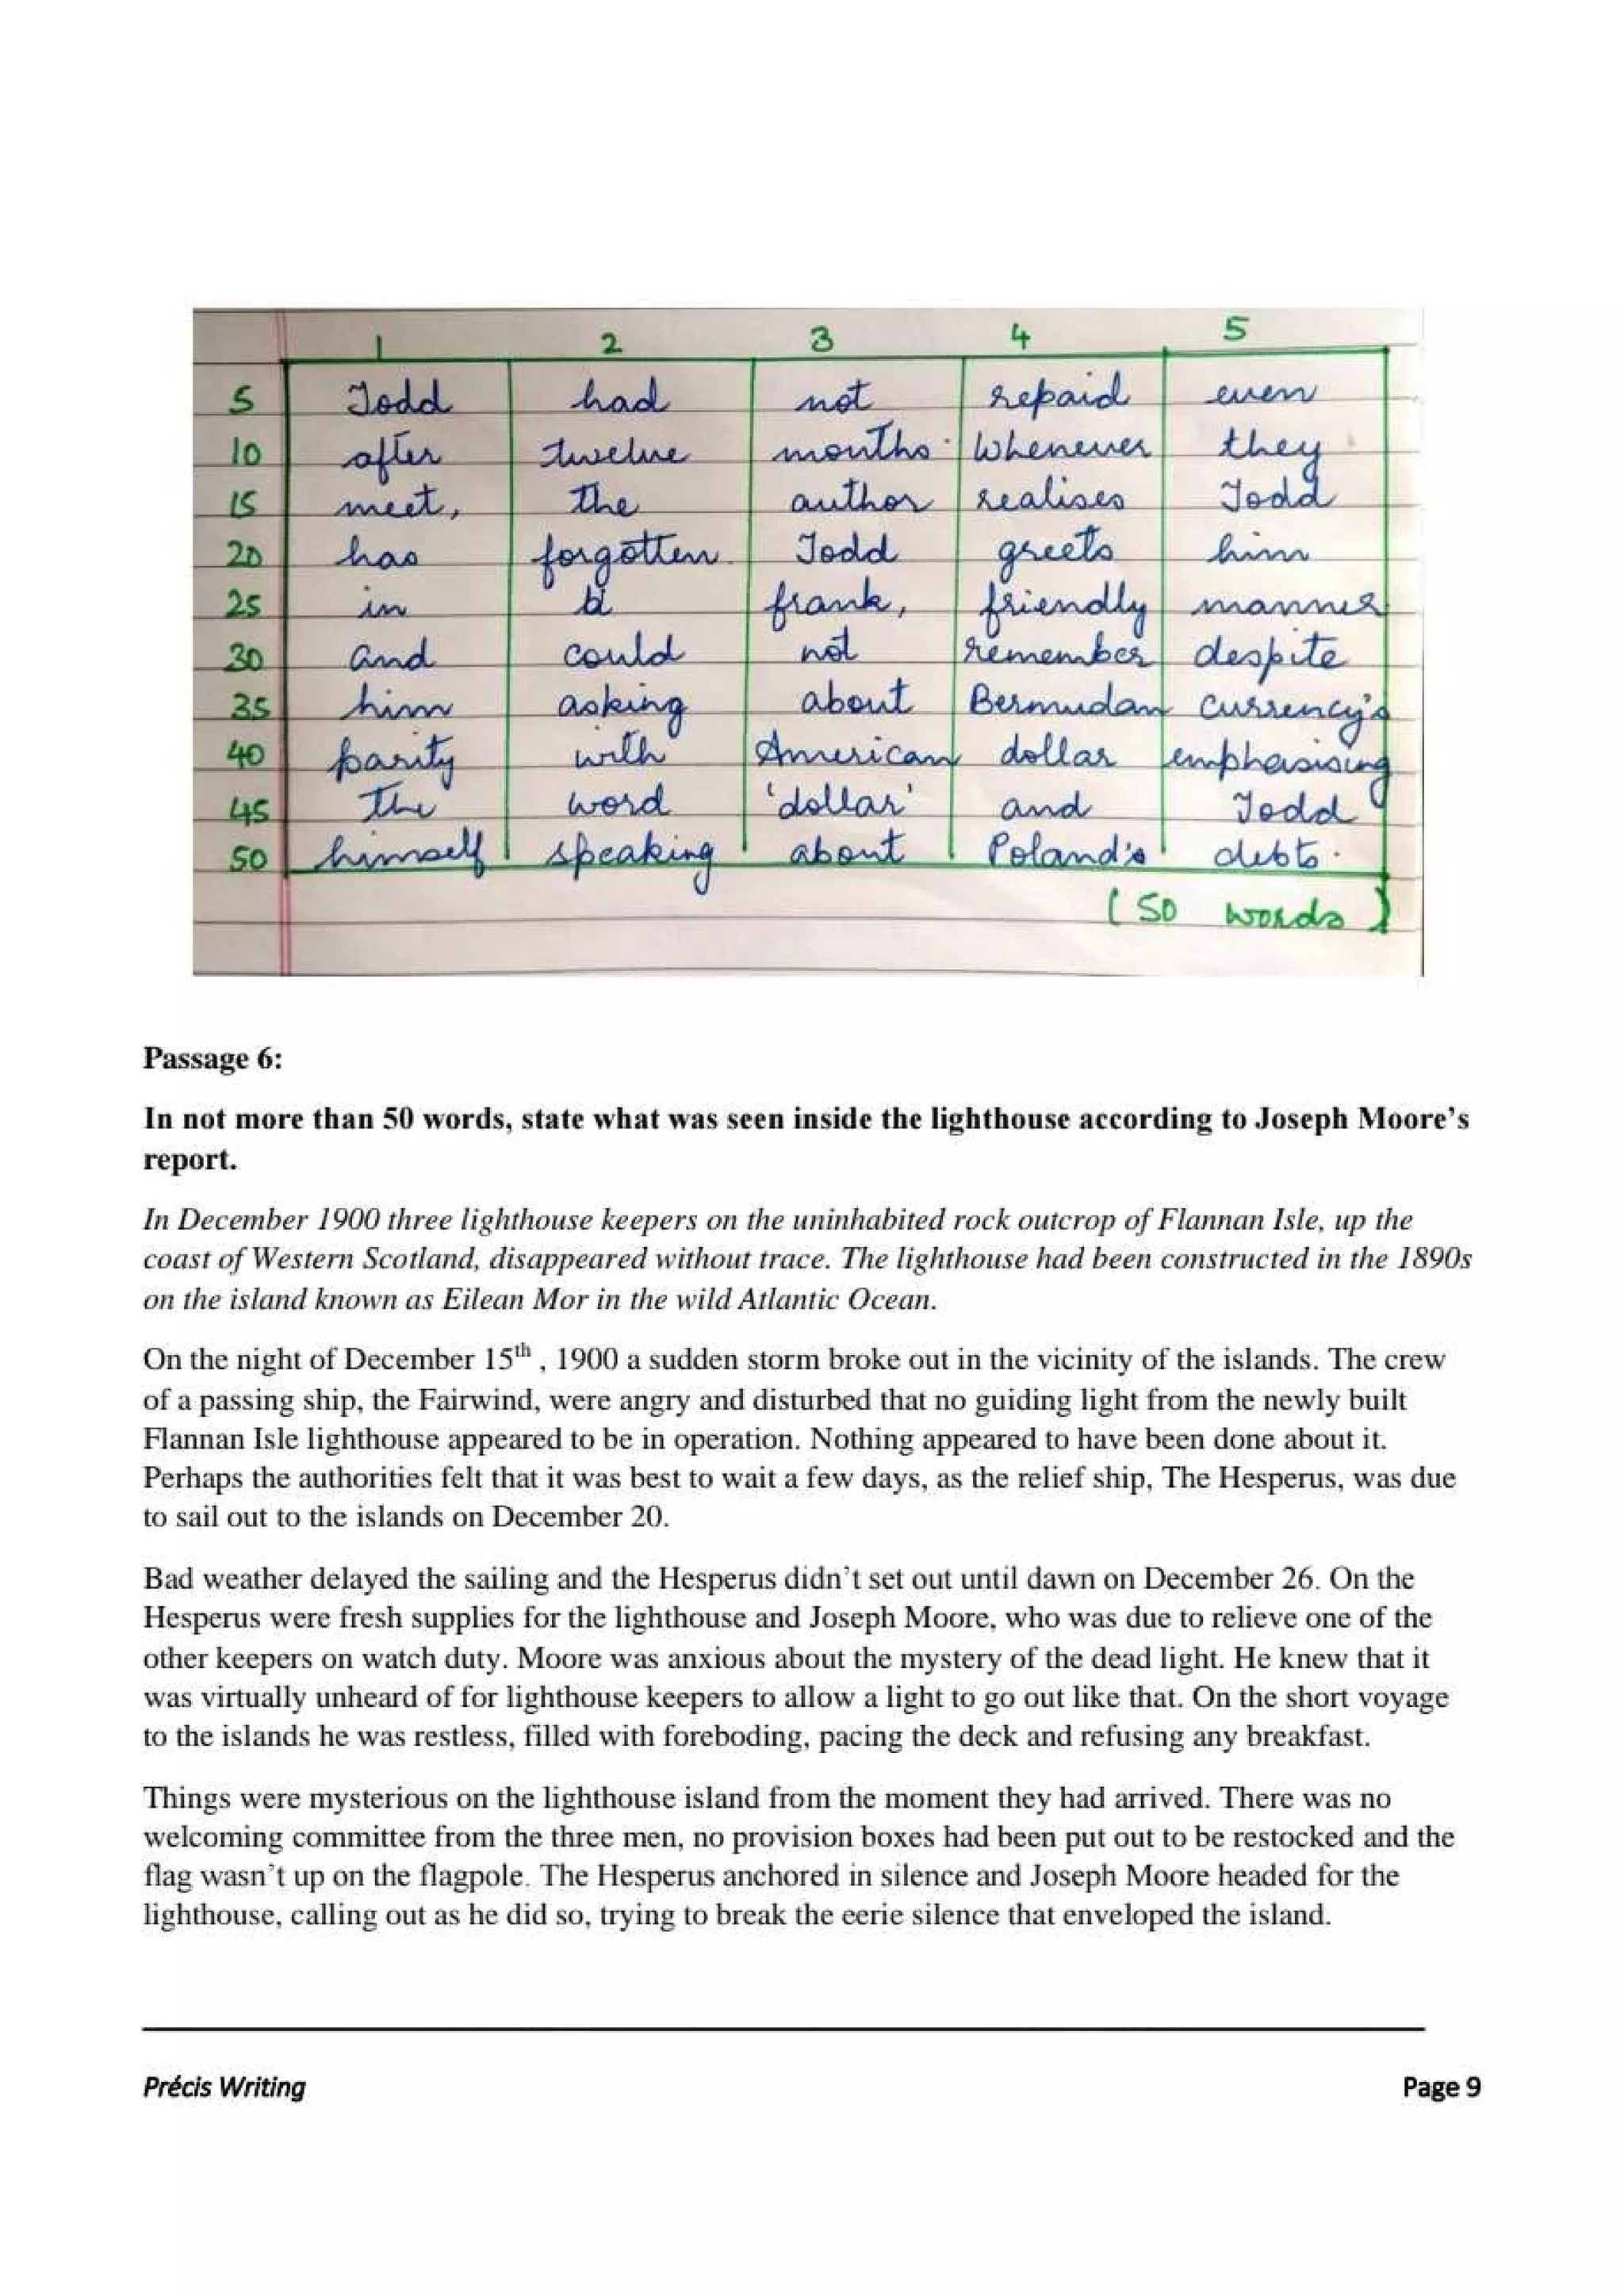 1 2 3 4 5
5 Todd had not repaid even
10 after twelve months. Whenever they
15 meet, the author realises Todd
20 has forgotten. Todd greets him
25 in a frank, friendly manner
30 and could not remember despite
35 him asking about Bermudan currency's
40 parity with American dollar emphasising
45 the word 'dollar' and Todd
50 himself speaking about Poland's debts.
(50 words)
Passage 6:
In not more than 50 words, state what was seen inside the lighthouse according to Joseph Moore's
report.
In December 1900 three lighthouse keepers on the uninhabited rock outcrop of Flannan Isle, up the
coast of Western Scotland, disappeared without trace. The lighthouse had been constructed in the 1890s
on the island known as Eilean Mor in the wild Atlantic Ocean.
On the night of December 15th , 1900 a sudden storm broke out in the vicinity of the islands. The crew
of a passing ship, the Fairwind, were angry and disturbed that no guiding light from the newly built
Flannan Isle lighthouse appeared to be in operation. Nothing appeared to have been done about it.
Perhaps the authorities felt that it was best to wait a few days, as the relief ship, The Hesperus, was due
to sail out to the islands on December 20.
Bad weather delayed the sailing and the Hesperus didn't set out until dawn on December 26. On the
Hesperus were fresh supplies for the lighthouse and Joseph Moore, who was due to relieve one of the
other keepers on watch duty. Moore was anxious about the mystery of the dead light. He knew that it
was virtually unheard of for lighthouse keepers to allow a light to go out like that. On the short voyage
to the islands he was restless, filled with foreboding, pacing the deck and refusing any breakfast.
Things were mysterious on the lighthouse island from the moment they had arrived. There was no
welcoming committee from the three men, no provision boxes had been put out to be restocked and the
flag wasn't up on the flagpole. The Hesperus anchored in silence and Joseph Moore headed for the
lighthouse, calling out as he did so, trying to break the eerie silence that enveloped the island.
Précis Writing Page 9